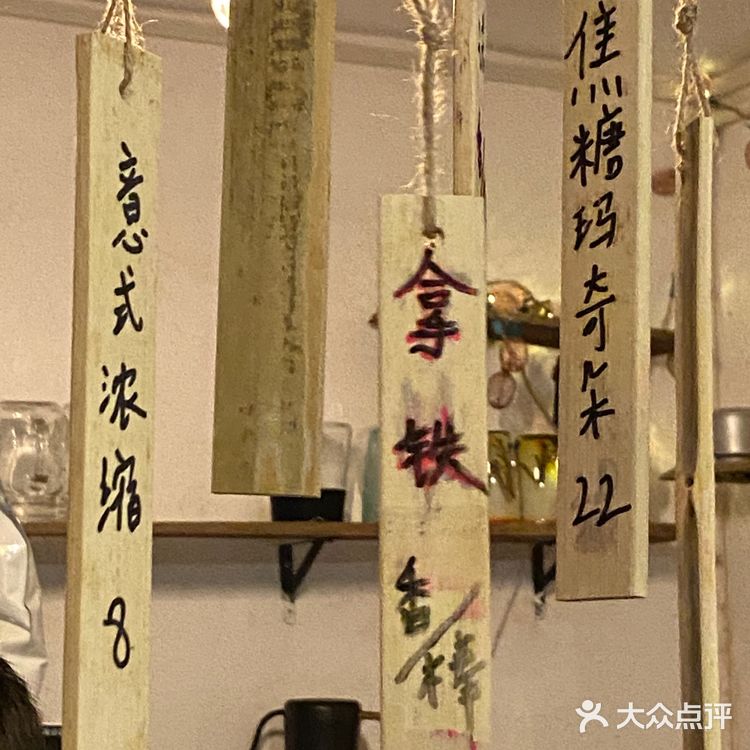 意式浓缩 8
拿铁
香/榛
焦糖玛奇朵 22
大众点评